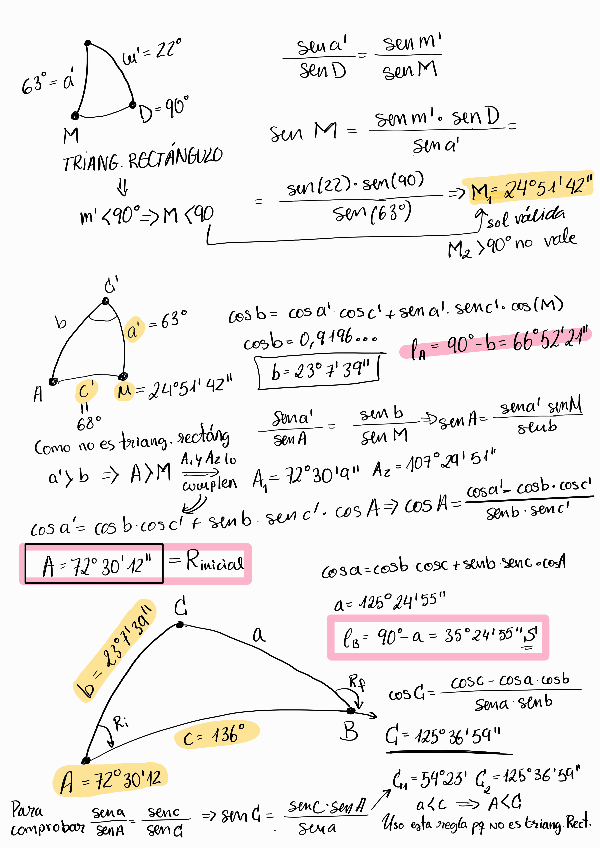 m' = 22°
63° = a'
D = 90°
M
TRIANG. RECTÁNGULO
⇓
m' < 90° ⇒ M < 90
sen a' / sen D = sen m' / sen M
sen M = sen m' · sen D / sen a' =
= sen(22) · sen(90) / sen(63°) ⇒ M₁ = 24°51'42"
sol válida
M₂ > 90° no vale
C'
b
a' = 63°
A
C'
M = 24°51'42"
68°
cos b = cos a' cos c' + sen a' · sen c' · cos(M)
cos b = 0,9196...
b = 23°7'39"
l_A = 90° - b = 66°52'21"
Como no es triang. rectáng
a' > b ⇒ A > M ⇒ A₁ y A₂ lo cumplen
sen a' / sen A = sen b / sen M ⇒ sen A = sen a' sen M / sen b
A₁ = 72°30'9" A₂ = 107°29'51"
cos a' = cos b · cos c' + sen b · sen c' · cos A ⇒ cos A = cos a' - cos b · cos c' / sen b · sen c'
A = 72°30'12" = R inicial
cos a = cos b cos c + sen b · sen c · cos A
a = 125°24'55"
l_B = 90° - a = 35°24'55" S
C
b = 23°7'39"
a
Ri
Rp
c = 136°
B
A = 72°30'12
cos C = cos c - cos a · cos b / sen a · sen b
C = 125°36'59"
C₁ = 54°23' C₂ = 125°36'59"
a < c ⇒ A < C
Uso esta regla pq no es triang. Rect.
Para comprobar sen a / sen A = sen c / sen C ⇒ sen C = sen c · sen A / sen a